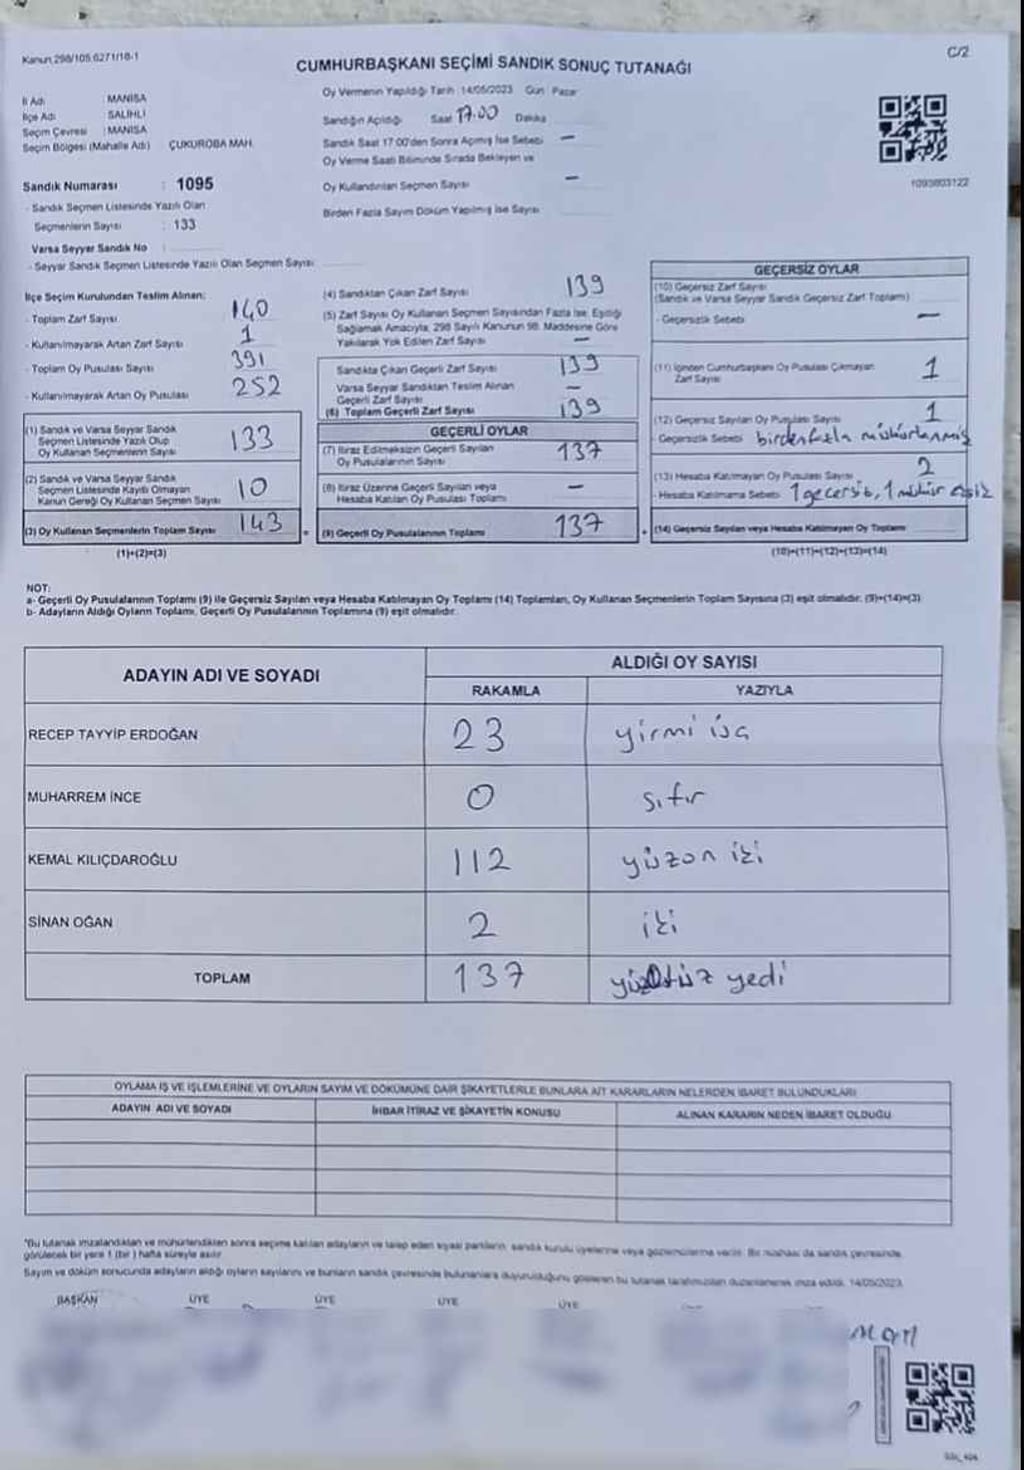 Kanun 298/105 6271/18-1
C/2
CUMHURBAŞKANI SEÇİMİ SANDIK SONUÇ TUTANAĞI
İl Adı : MANİSA
İlçe Adı : SALİHLİ
Seçim Çevresi : MANİSA
Seçim Bölgesi (Mahalle Adı) ÇUKUROBA MAH.
Sandık Numarası : 1095
- Sandık Seçmen Listesinde Yazılı Olan
Seçmenlerin Sayısı : 133
Varsa Seyyar Sandık No :
- Seyyar Sandık Seçmen Listesinde Yazılı Olan Seçmen Sayısı:
Oy Vermenin Yapıldığı Tarih : 14/05/2023 Gün : Pazar
Sandığın Açıldığı Saat 17:00 Dakika
Sandık Saat 17:00'den Sonra Açılmış İse Sebebi —
Oy Verme Saati Bitiminde Sırada Bekleyen ve
Oy Kullandırılan Seçmen Sayısı —
Birden Fazla Sayım Döküm Yapılmış İse Sayısı
1095803122
İlçe Seçim Kurulundan Teslim Alınan;
- Toplam Zarf Sayısı 140
- Kullanılmayarak Artan Zarf Sayısı 1
- Toplam Oy Pusulası Sayısı 391
- Kullanılmayarak Artan Oy Pusulası 252
(1) Sandık ve Varsa Seyyar Sandık
Seçmen Listesinde Yazılı Olup
Oy Kullanan Seçmenlerin Sayısı 133
(2) Sandık ve Varsa Seyyar Sandık
Seçmen Listesinde Kayıtlı Olmayan
Kanun Gereği Oy Kullanan Seçmen Sayısı 10
(3) Oy Kullanan Seçmenlerin Toplam Sayısı 143
(1)+(2)=(3)
(4) Sandıktan Çıkan Zarf Sayısı 139
(5) Zarf Sayısı Oy Kullanan Seçmen Sayısından Fazla İse, Eşitliği
Sağlamak Amacıyla, 298 Sayılı Kanunun 98. Maddesine Göre
Yakılarak Yok Edilen Zarf Sayısı —
Sandıkta Çıkan Geçerli Zarf Sayısı 139
Varsa Seyyar Sandıktan Teslim Alınan
Geçerli Zarf Sayısı —
(6) Toplam Geçerli Zarf Sayısı 139
GEÇERLİ OYLAR
(7) İtiraz Edilmeksizin Geçerli Sayılan
Oy Pusulalarının Sayısı 137
(8) İtiraz Üzerine Geçerli Sayılan veya
Hesaba Katılan Oy Pusulası Toplamı —
(9) Geçerli Oy Pusulalarının Toplamı 137
GEÇERSİZ OYLAR
(10) Geçersiz Zarf Sayısı
(Sandık ve Varsa Seyyar Sandık Geçersiz Zarf Toplamı)
- Geçersizlik Sebebi —
(11) İçinden Cumhurbaşkanı Oy Pusulası Çıkmayan
Zarf Sayısı 1
(12) Geçersiz Sayılan Oy Pusulası Sayısı 1
- Geçersizlik Sebebi birden fazla mühürlenmiş
(13) Hesaba Katılmayan Oy Pusulası Sayısı 2
- Hesaba Katılmama Sebebi 1 geçersiz, 1 mühür
(14) Geçersiz Sayılan veya Hesaba Katılmayan Oy Toplamı
(10)+(11)+(12)+(13)=(14)
NOT:
a- Geçerli Oy Pusulalarının Toplamı (9) ile Geçersiz Sayılan veya Hesaba Katılmayan Oy Toplamı (14) Toplamları, Oy Kullanan Seçmenlerin Toplam Sayısına (3) eşit olmalıdır. (9)+(14)=(3)
b- Adayların Aldığı Oyların Toplamı, Geçerli Oy Pusulalarının Toplamına (9) eşit olmalıdır.
ADAYIN ADI VE SOYADI
ALDIĞI OY SAYISI
RAKAMLA YAZIYLA
RECEP TAYYİP ERDOĞAN 23 yirmi üç
MUHARREM İNCE 0 sıfır
KEMAL KILIÇDAROĞLU 112 yüzon iki
SİNAN OĞAN 2 iki
TOPLAM 137 yüzotuz yedi
OYLAMA İŞ VE İŞLEMLERİNE VE OYLARIN SAYIM VE DÖKÜMÜNE DAİR ŞİKAYETLERLE BUNLARA AİT KARARLARIN NELERDEN İBARET BULUNDUKLARI
ADAYIN ADI VE SOYADI İHBAR İTİRAZ VE ŞİKAYETİN KONUSU ALINAN KARARIN NEDEN İBARET OLDUĞU
*Bu tutanak imzalandıktan ve mühürlendikten sonra seçime katılan adayların ve talep eden siyasi partilerin, sandık kurulu üyelerine veya gözlemcilerine verilir. Bir nüshası da sandık çevresinde
görülecek bir yere 1 (bir) hafta süreyle asılır.
Sayım ve döküm sonucunda adayların aldığı oyların sayılarını ve bunların sandık çevresinde bulunanlara duyurulduğunu gösteren bu tutanak tarafımızdan düzenlenerek imza edildi. 14/05/2023
BAŞKAN ÜYE ÜYE ÜYE ÜYE